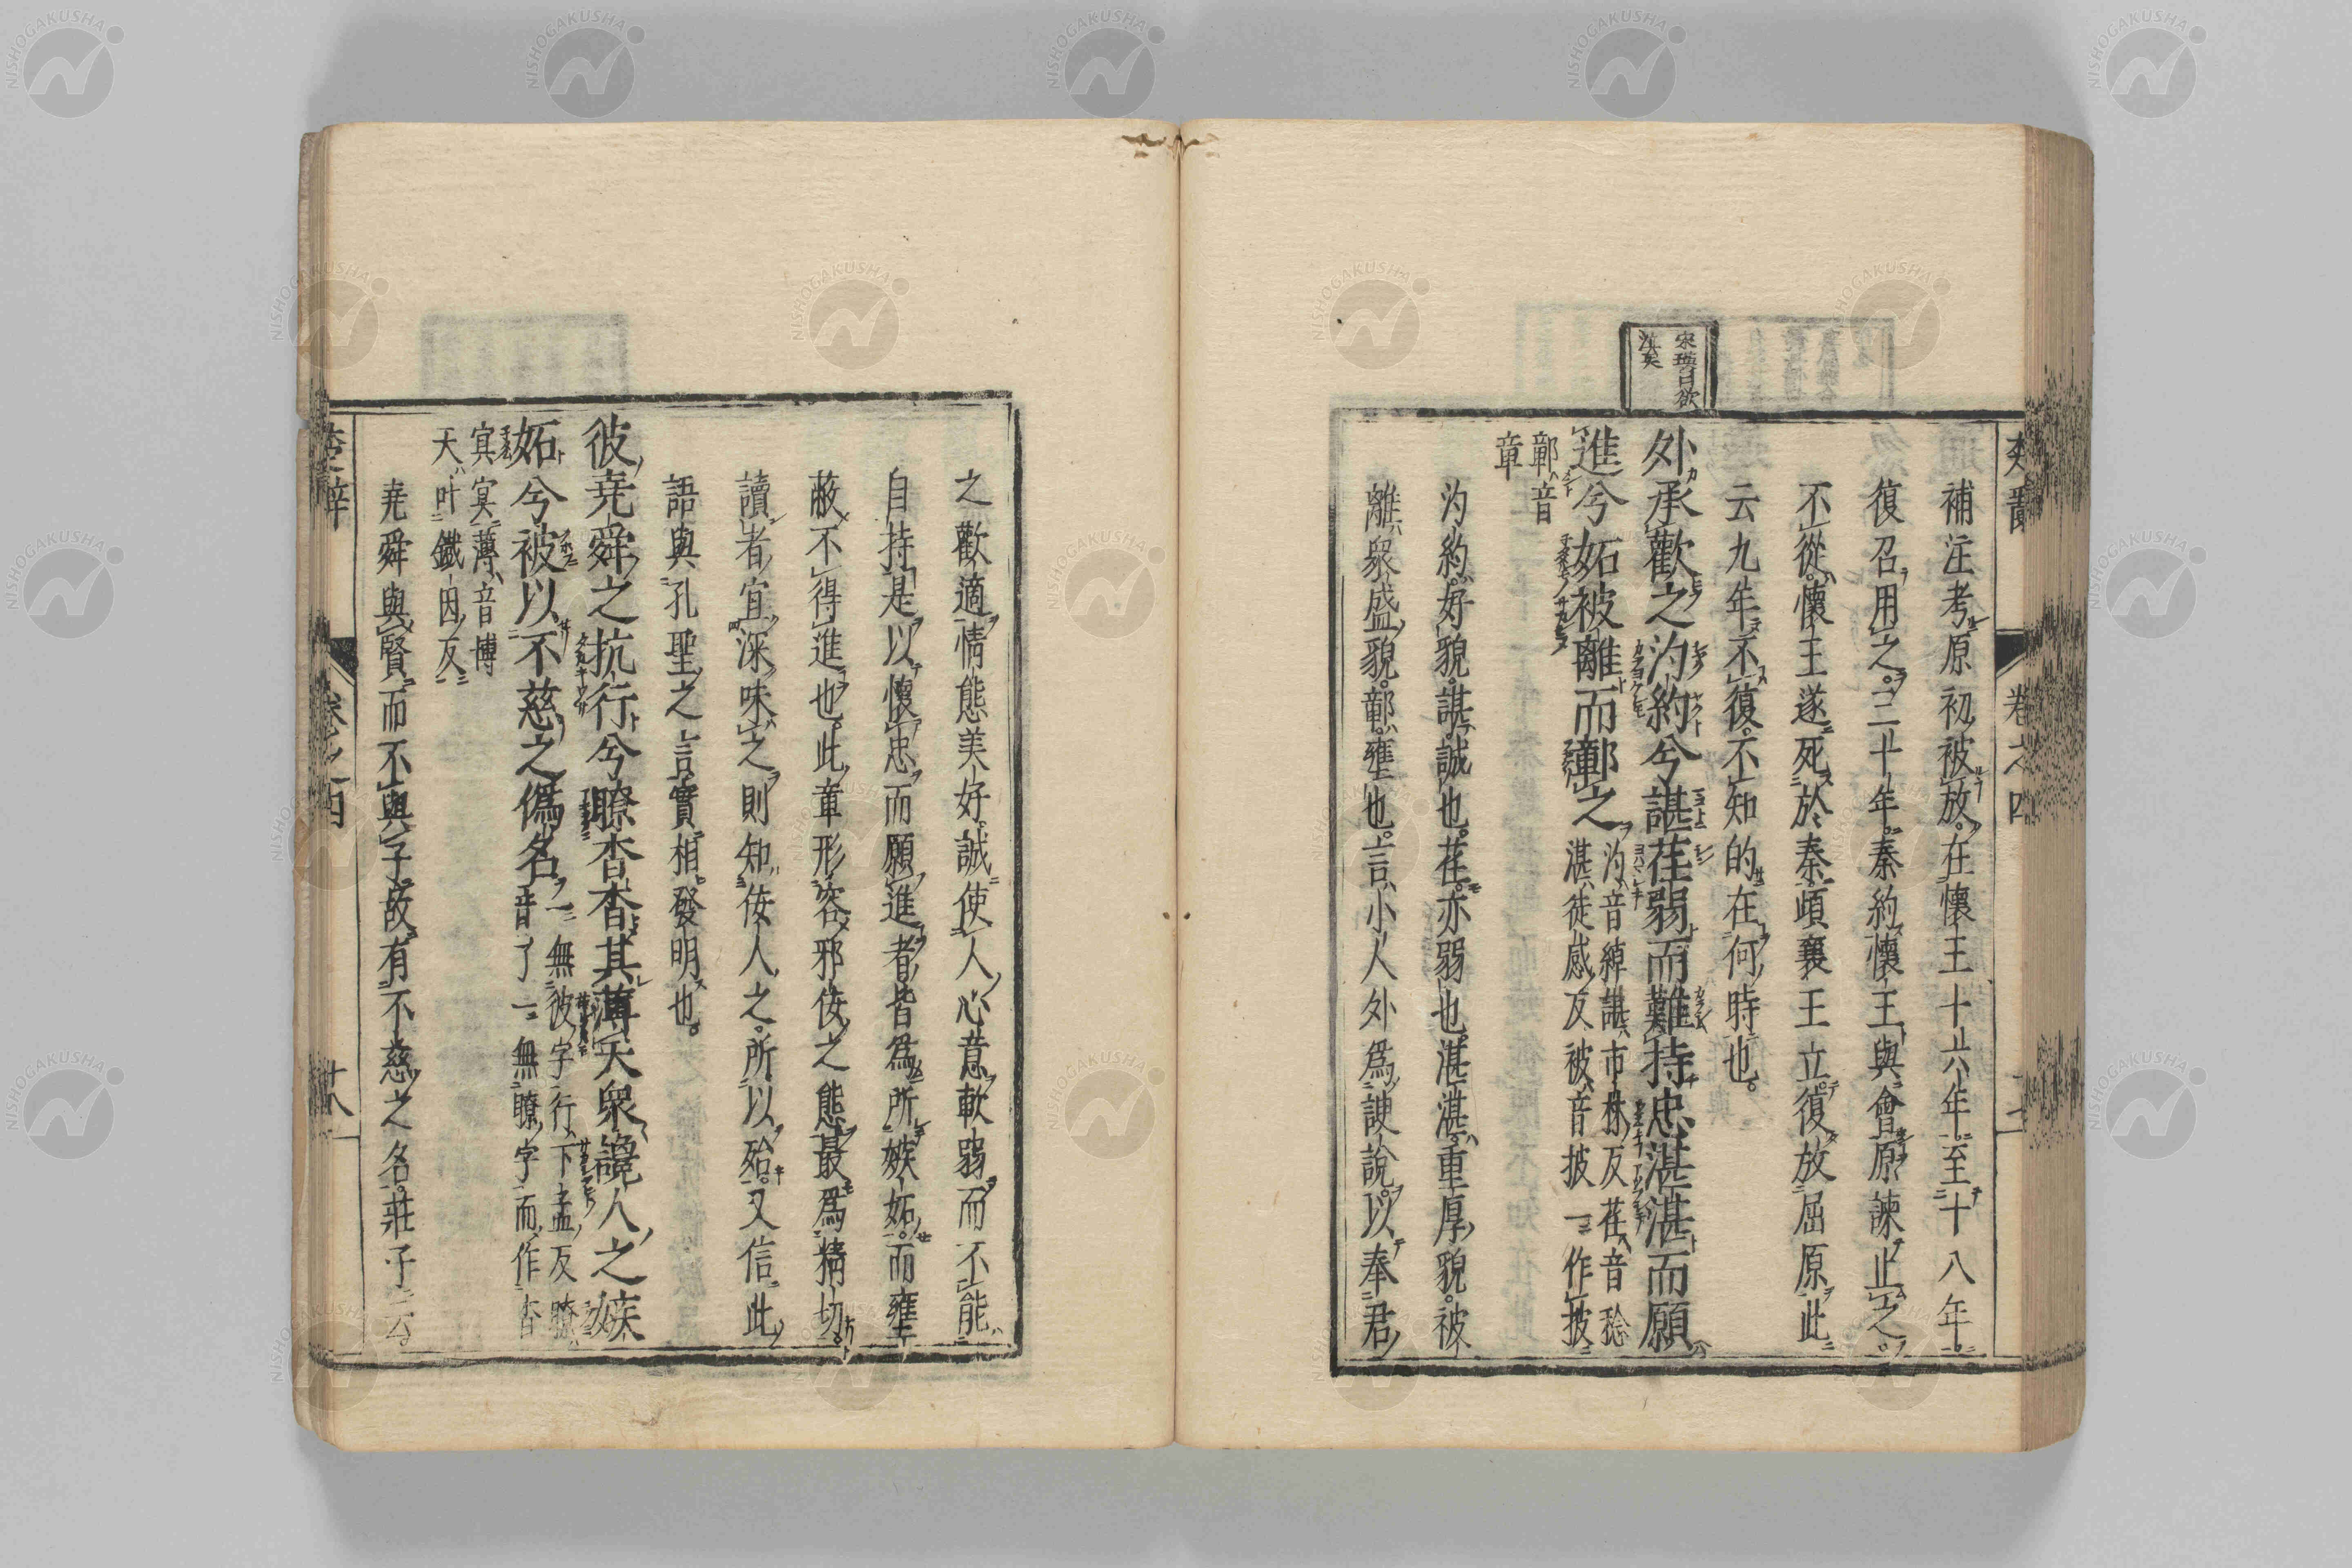 宋瓊曰欲
滇矣
補注考原初被放在懷王十六年至十八年
復召用之三十年秦約懷王與會原諫止之
不從懷王遂死於秦頃襄王立復放屈原此
云九年不復不知的在何時也。
外承歡之汋約兮諶荏弱而難持忠湛湛而願
進兮妬被離而鄣之
汋音綽諶市林反荏音稔
湛徒感反被音披一作披
鄣音
章
汋約好貌諶誠也荏亦弱也湛湛重厚貌被
離衆盛貌鄣壅也言小人外爲諛說以奉君
之歡適情態美好誠使人心意軟弱而不能
自持是以懷忠而願進者皆爲所嫉妬而壅
蔽不得進也此章形容邪佞之態最爲精切
讀者宜深味之則知佞人之所以殆又信此
語與孔聖之言實相發明也。
彼堯舜之抗行兮瞭杳杳其薄天衆讒人之嫉
妬兮被以不慈之僞名
一無彼字行下孟反瞭
音了一無瞭字而作杳
冥冥薄音博
天叶鐵因反
堯舜與賢而不與子故有不慈之名莊子云
楚辭 卷之四 廿八